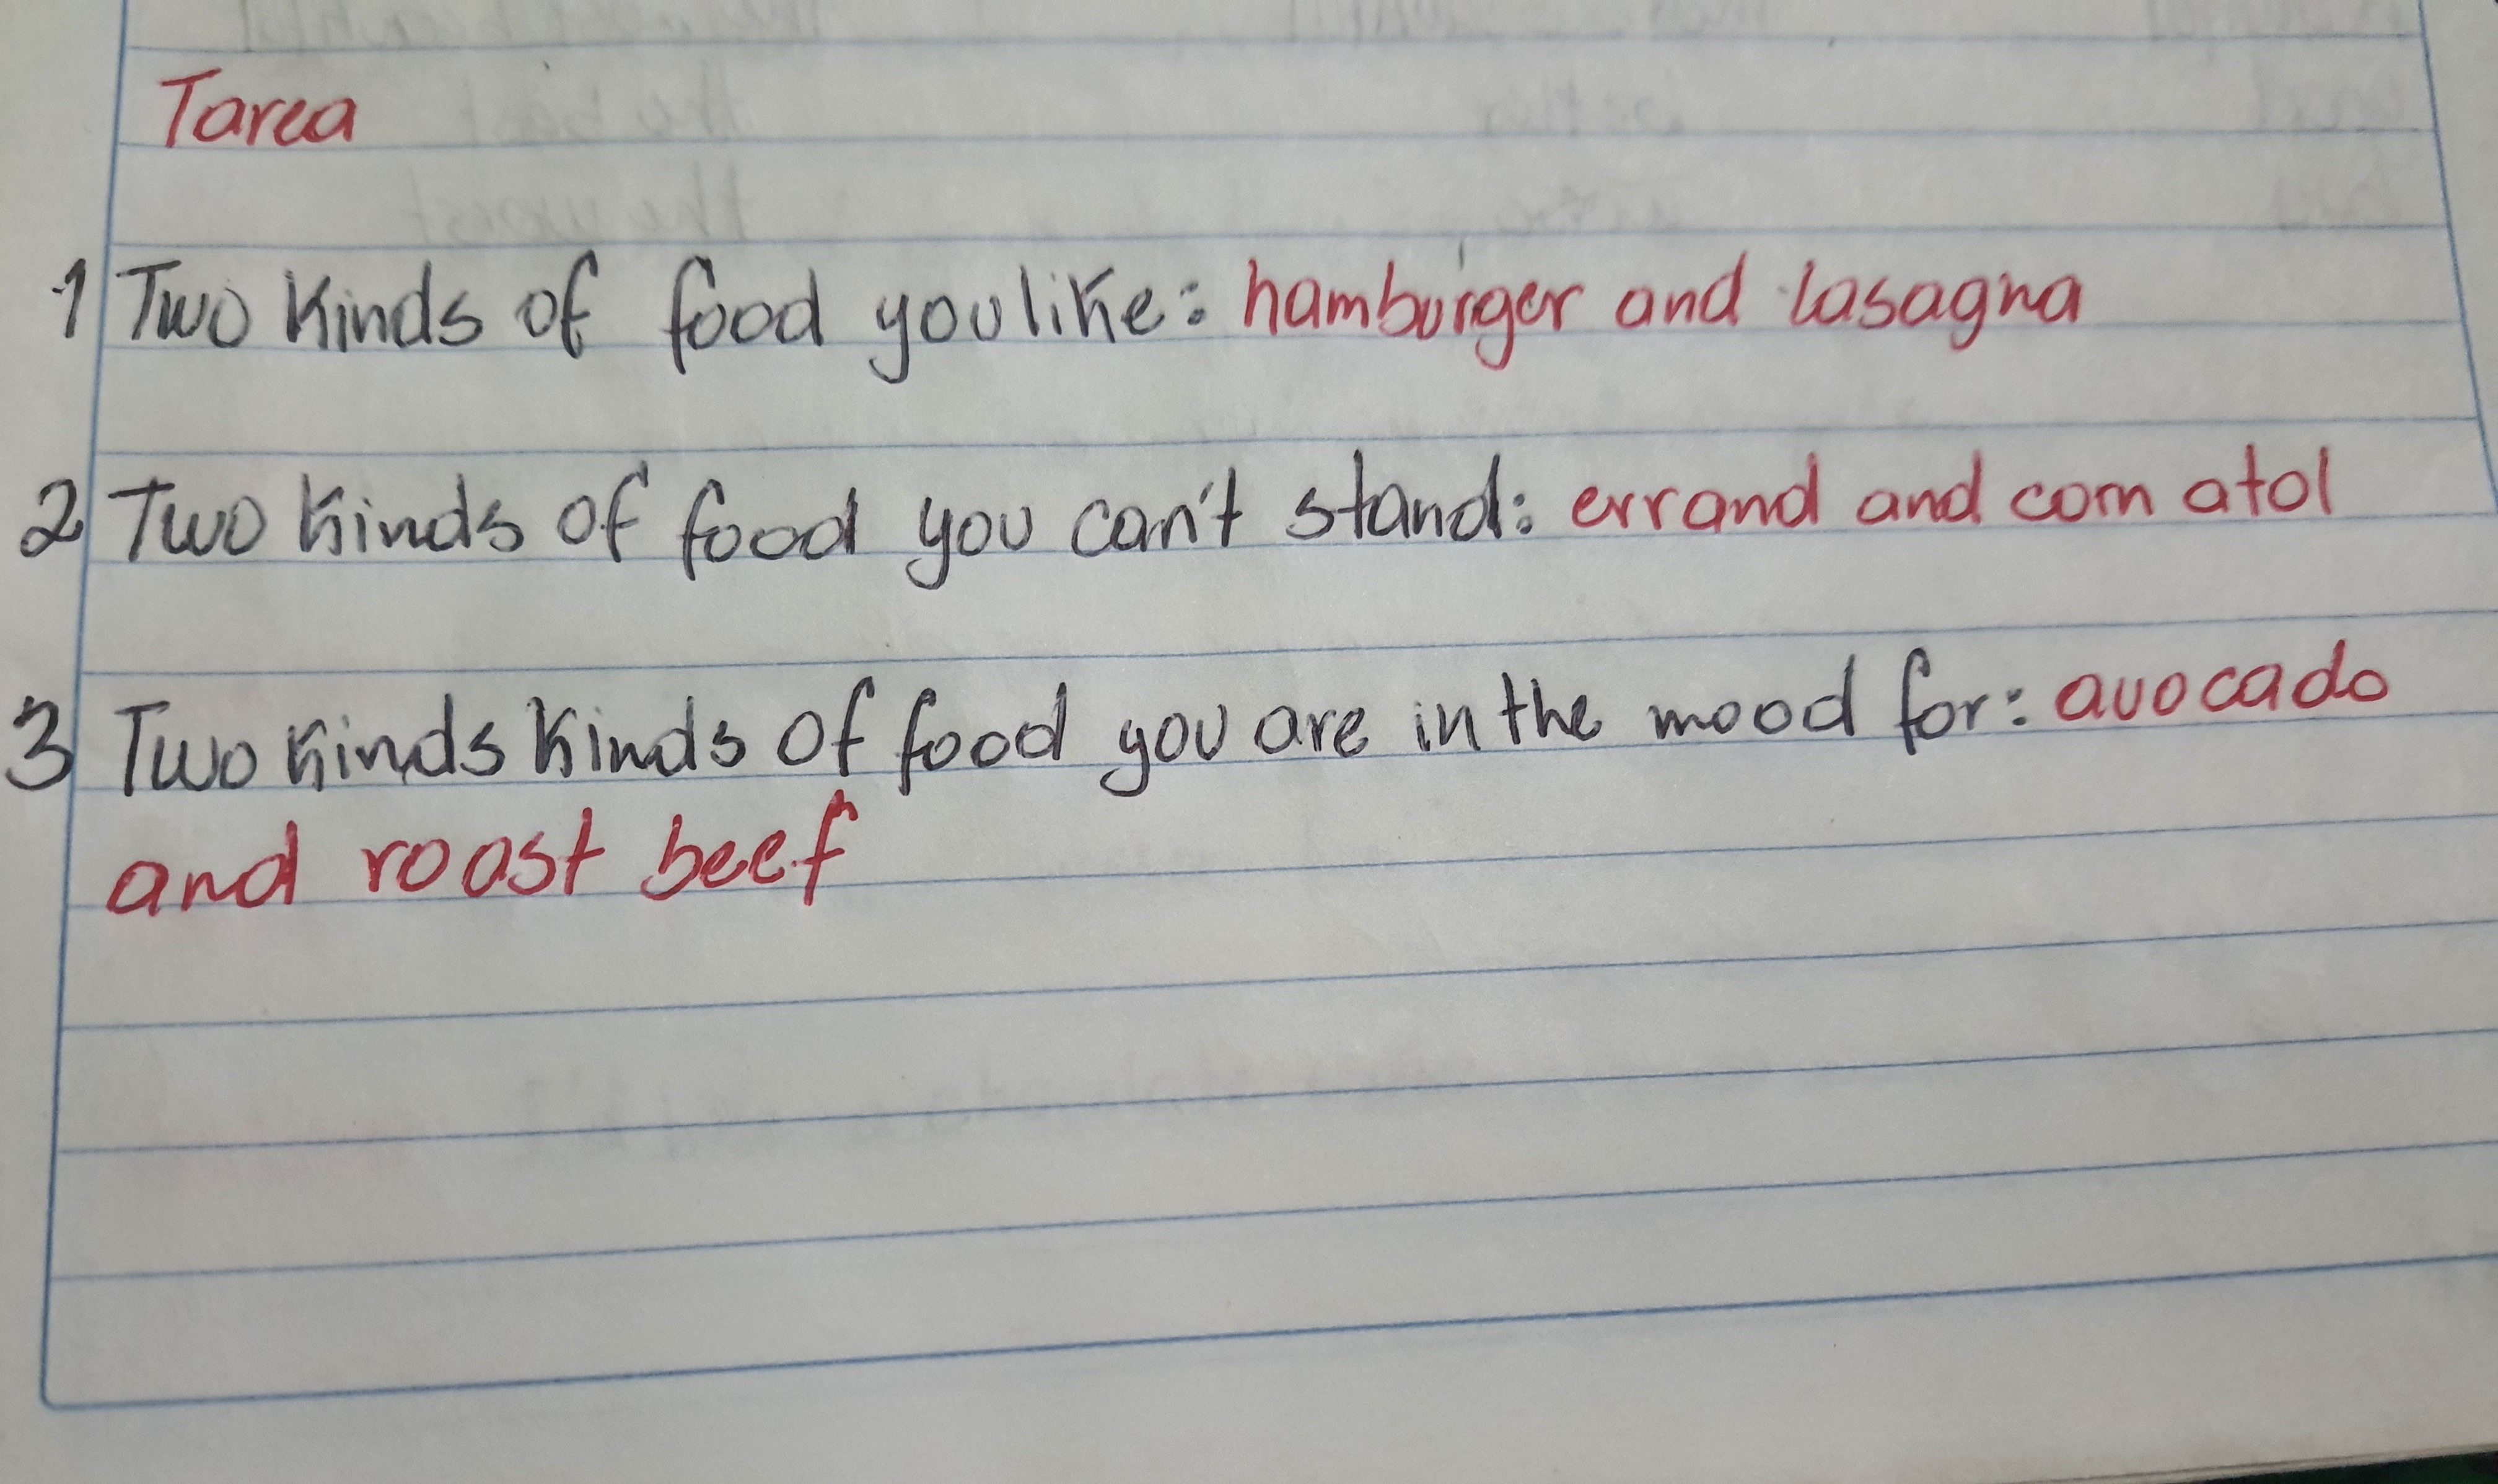 Tarea
1 Two Kinds of food you like: hamburger and lasagna
2 Two Kinds of food you can't stand: errand and corn atol
3 Two Kinds Kinds of food you are in the mood for: avocado
and roast beef